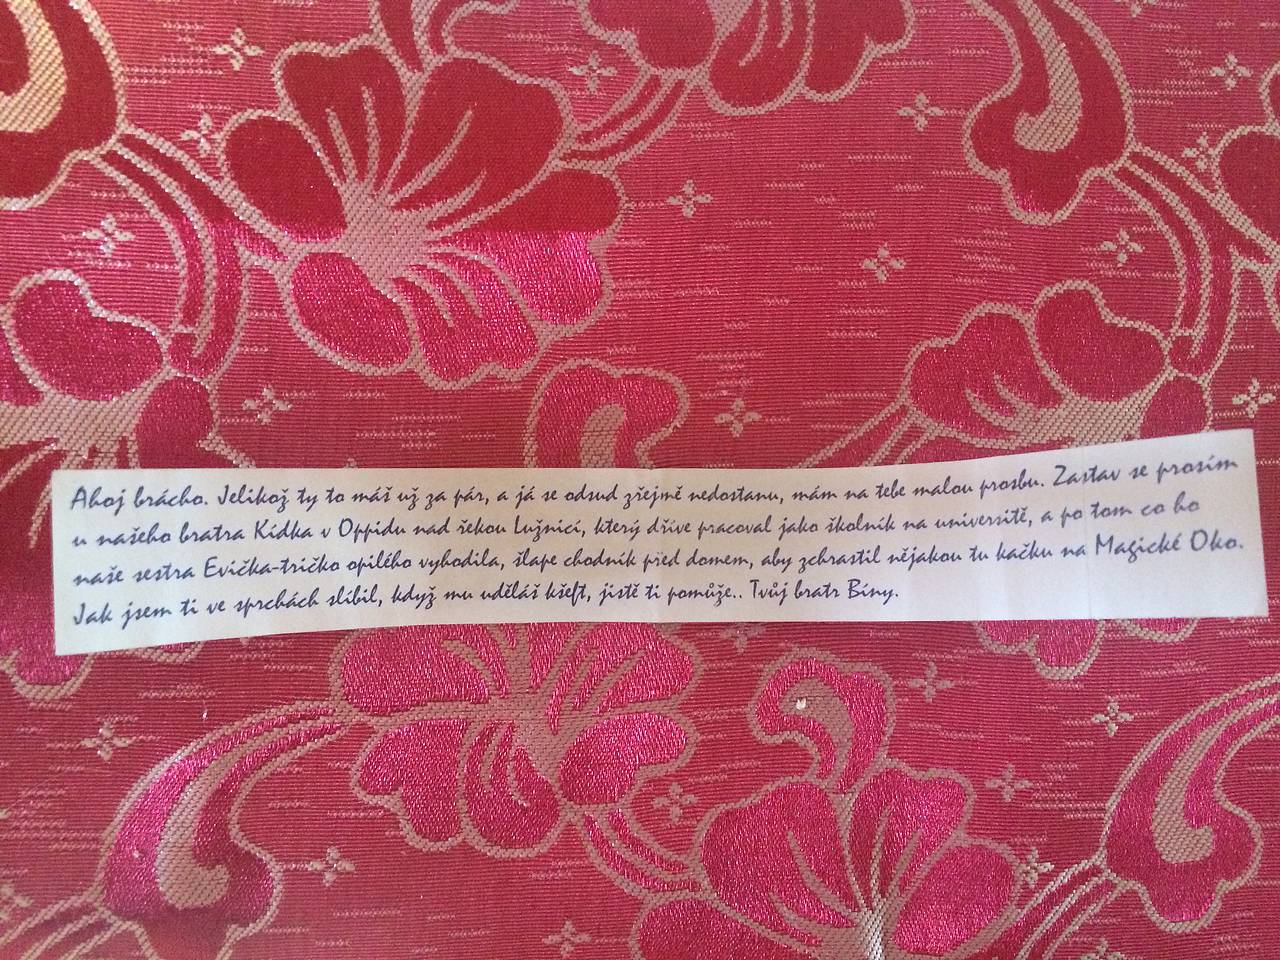 Ahoj brácho. Jelikož ty to máš už za pár, a já se odsud zřejmě nedostanu, mám na tebe malou prosbu. Zastav se prosím
u našeho bratra Kídka v Oppidu nad řekou Lužnicí, který dříve pracoval jako školník na universitě, a po tom co ho
naše sestra Evička-tričko opilého vyhodila, šlape chodník před domem, aby zchrastil nějakou tu kačku na Magické Oko.
Jak jsem ti ve sprchách slíbil, když mu uděláš kšeft, jistě ti pomůže.. Tvůj bratr Bíny.